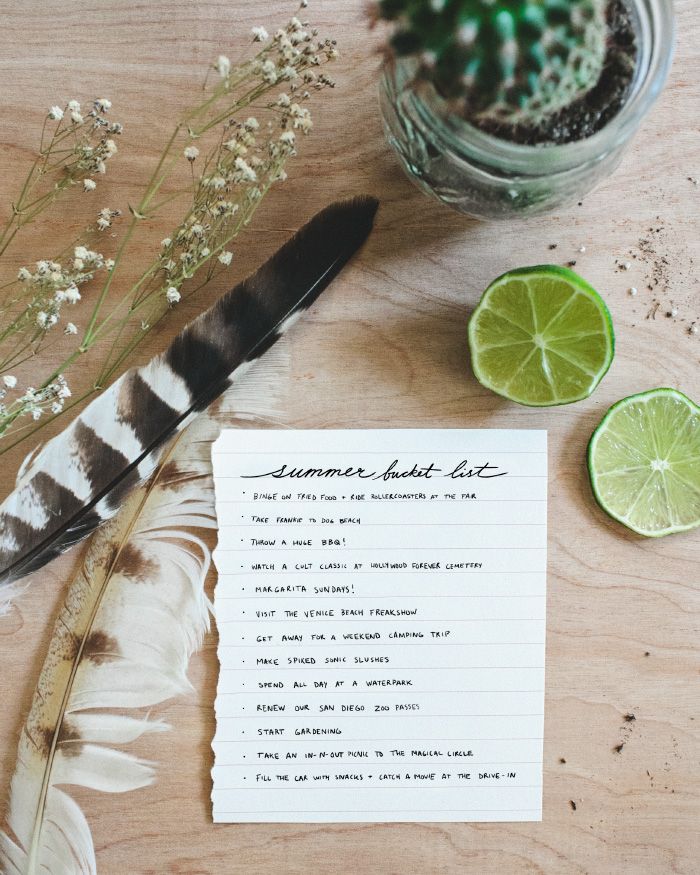 summer bucket list
· BINGE ON FRIED FOOD + RIDE ROLLERCOASTERS AT THE FAIR
· TAKE FRANKIE TO DOG BEACH
· THROW A HUGE BBQ!
· WATCH A CULT CLASSIC AT HOLLYWOOD FOREVER CEMETERY
· MARGARITA SUNDAYS!
· VISIT THE VENICE BEACH FREAKSHOW
· GET AWAY FOR A WEEKEND CAMPING TRIP
· MAKE SPIKED SONIC SLUSHES
· SPEND ALL DAY AT A WATERPARK
· RENEW OUR SAN DIEGO ZOO PASSES
· START GARDENING
· TAKE AN IN-N-OUT PICNIC TO THE MAGICAL CIRCLE
· FILL THE CAR WITH SNACKS + CATCH A MOVIE AT THE DRIVE-IN